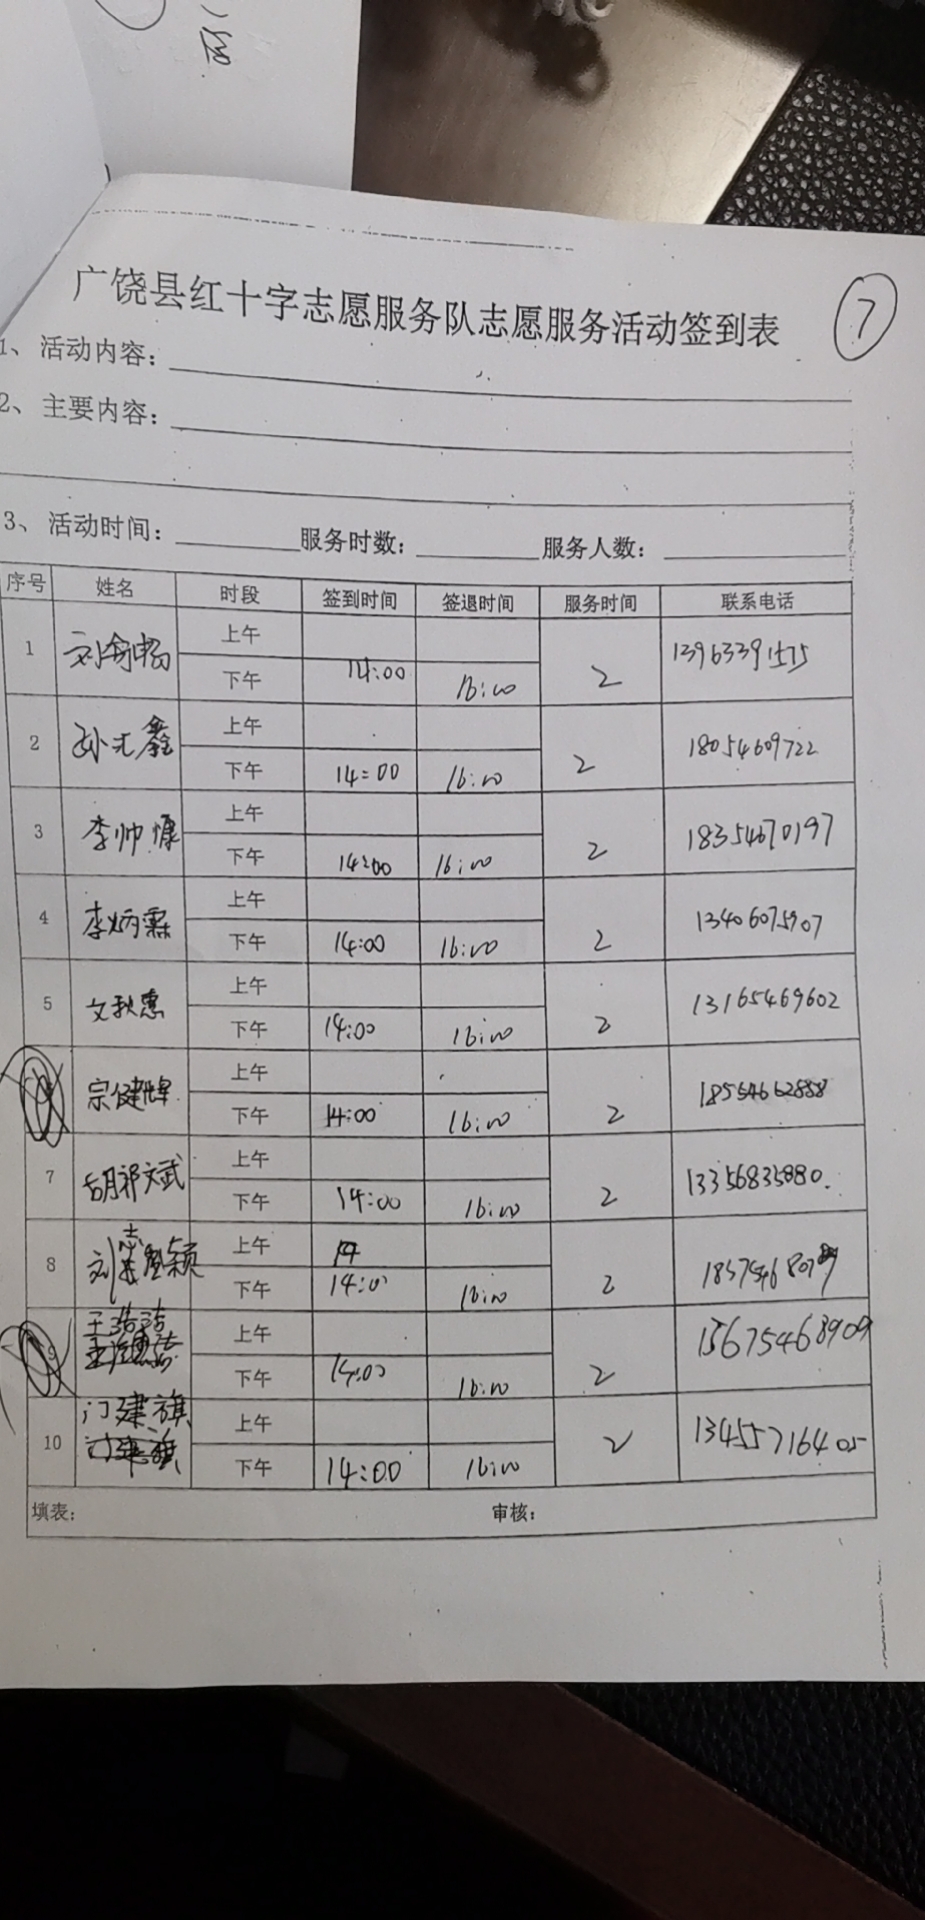 广饶县红十字志愿服务队志愿服务活动签到表 7
1、活动内容：
2、主要内容：
3、活动时间： 服务时数： 服务人数：
序号 姓名 时段 签到时间 签退时间 服务时间 联系电话
1 刘俞畅 上午
下午 14:00 16:00 2 13963391575
2 孙尤鑫 上午
下午 14:00 16:00 2 18054609722
3 李帅慷 上午
下午 14:00 16:00 2 18354670197
4 李炳霖 上午
下午 14:00 16:00 2 13406075907
5 文秋惠 上午
下午 14:00 16:00 2 13165469602
宗健峰 上午
下午 14:00 16:00 2 18554662888
7 胡祁文武 上午
下午 14:00 16:00 2 13356835880.
8 刘志颖 上午 14
下午 14:0 16:00 2
9 王浩洁 上午
下午 14:00 16:00 2 15675468909
10 门建旗 上午
下午 14:00 16:00 2 13455716405
填表： 审核：